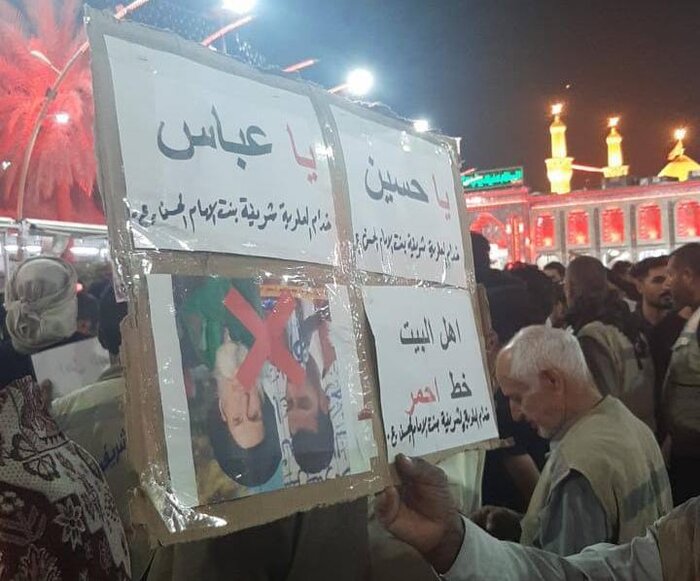 يا عباس
خدام العلوية شريفة بنت الامام الحسن ع
يا حسين
خدام العلوية شريفة بنت الامام الحسن ع
اهل البيت
خط احمر
خدام العلوية شريفة بنت الامام الحسن ع